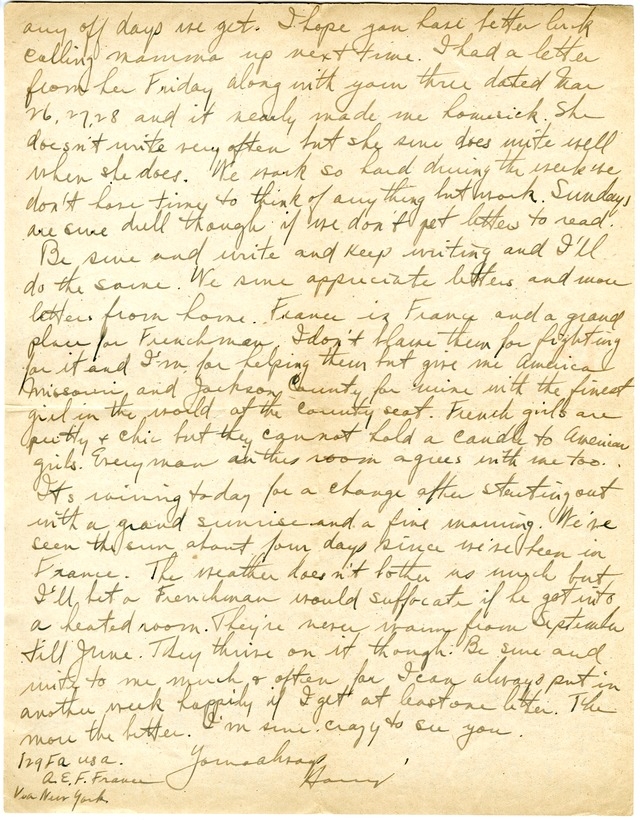 any off days we get. I hope you have better luck
calling mamma up next time. I had a letter
from her Friday along with your three dated Mar
26, 27, 28 and it nearly made me homesick. She
doesn't write very often but she sure does write well
when she does. We work so hard during the week we
don't have time to think of anything but work. Sundays
are sure dull though if we don't get letters to read.
Be sure and write and keep writing and I'll
do the same. We sure appreciate letters and more
letters from home. France is France and a grand
place for Frenchman. I don't blame them for fighting
for it and I'm for helping them but give me America
Missouri and Jackson County for mine with the finest
girl in the world at the county seat. French girls are
pretty & chic but they cannot hold a candle to American
girls. Every man in this room agrees with me too.
It's raining today for a change after starting out
with a grand sunrise and a fine morning. We've
seen the sun about four days since we've been in
France. The weather doesn't bother us much but
I'll bet a Frenchman would suffocate if he got into
a heated room. They're never warm from September
till June. They thrive on it though. Be sure and
write to me much & often for I can always put in
another week happily if I get at least one letter. The
more the better. I'm sure crazy to see you.
129 FA USA. Yours always
A.E.F. France Harry
Via New York.